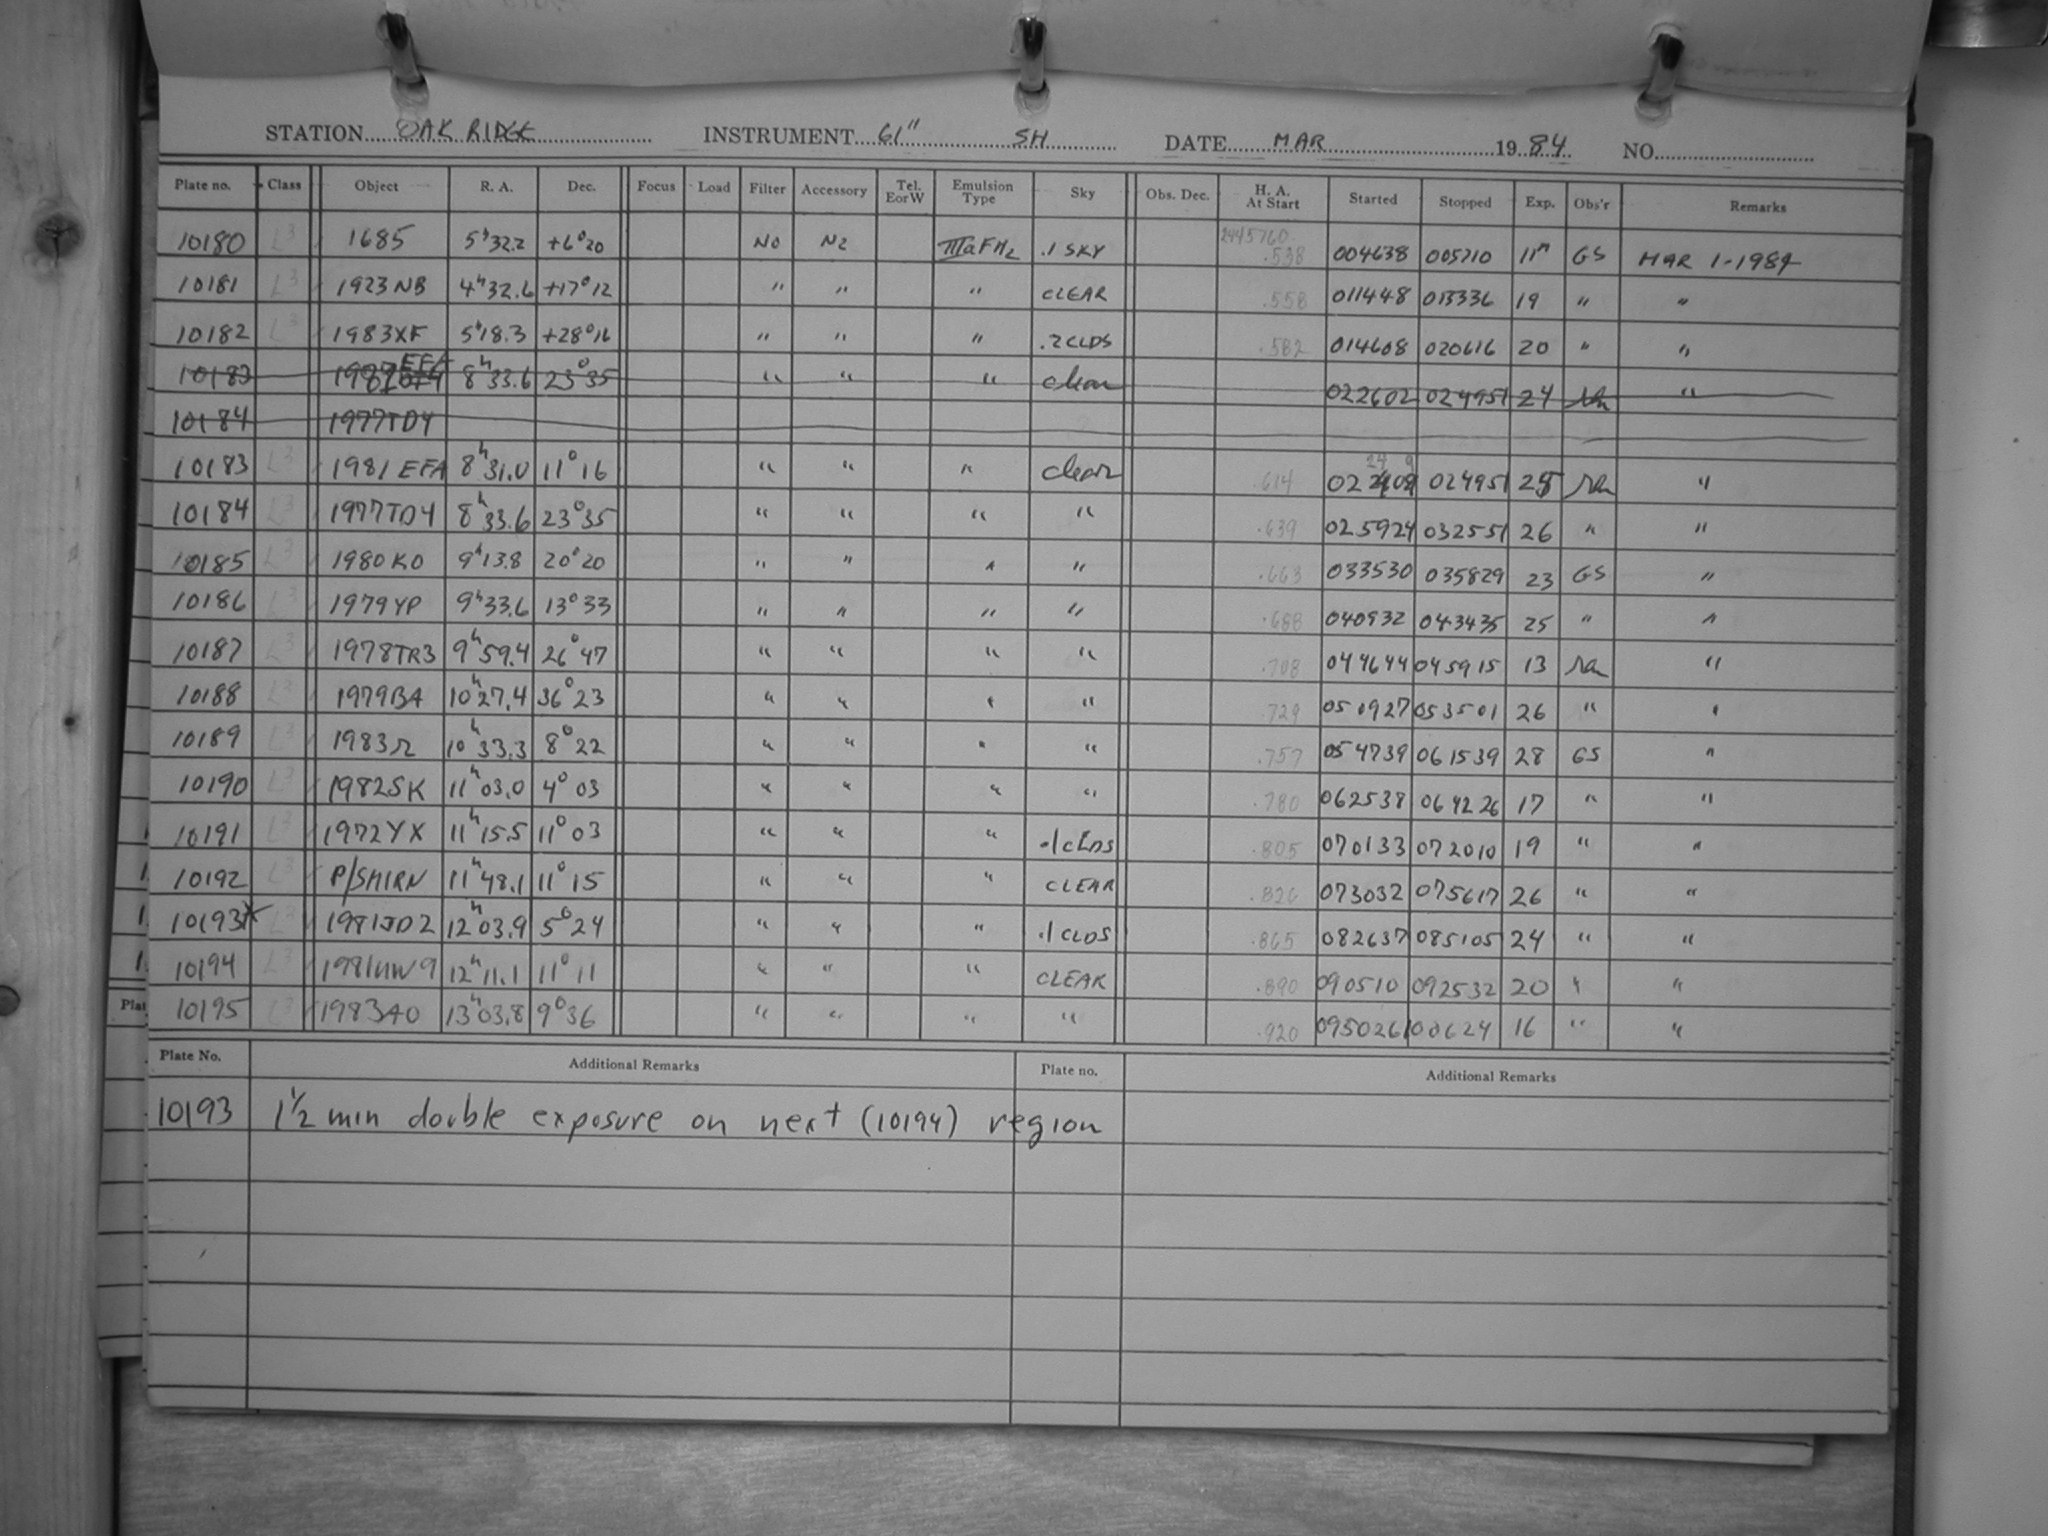 STATION OAK RIDGE INSTRUMENT 61" SH DATE MAR 1984 NO.
Plate no. Class Object R. A. Dec. Focus Load Filter Accessory Tel. EorW Emulsion Type Sky Obs. Dec. H. A. At Start Started Stopped Exp. Obs'r Remarks
10180 L3 1685 5h32.2 +6°20 No N2 IIIaFH2 .1 SKY 2445760. .538 004638 005710 11m GS MAR 1-1984
10181 L3 1923NB 4h32.6 +17°12 " " " CLEAR .558 011448 013336 19 " "
10182 L3 1983XF 5h18.3 +28°16 " " " .2CLDS .582 014608 020616 20 " "
10183 EFA 8h33.6 23°35 " " " clear 022602 024951 24 "
10184 1977TD4
10183 L3 1981EFA 8h31.0 11°16 " " " clear .614 024951 25 "
10184 L3 1977TD4 8h33.6 23°35 " " " " .639 025924 032551 26 " "
10185 L3 1980KO 9h13.8 20°20 " " " " .663 033530 035829 23 GS "
10186 L3 1979YP 9h33.6 13°33 " " " " .688 040932 043435 25 " "
10187 L3 1978TR3 9h59.4 26°47 " " " " .708 044644 045915 13 "
10188 L3 1979BA 10h27.4 36°23 " " " " .729 050927 053501 26 " "
10189 L3 10h33.3 8°22 " " " " .757 054739 061539 28 GS "
10190 L3 1982SK 11h03.0 4°03 " " " " .780 062538 064226 17 " "
10191 L3 1972YX 11h15.5 11°03 " " " .1CLDS .805 070133 072010 19 " "
10192 L3 P/SMIRN 11h48.1 11°15 " " " CLEAR .826 073032 075617 26 " "
10193* L3 1981JD2 12h03.9 5°24 " " " .1 CLDS .865 082637 085105 24 " "
10194 L3 1981UW9 12h11.1 11°11 " " " CLEAR .890 090510 092532 20 " "
10195 L3 1983AO 13h03.8 9°36 " " " " .920 095026 100624 16 " "
Plate No. Additional Remarks Plate no. Additional Remarks
10193 1 1/2 min double exposure on next (10194) region
Plat